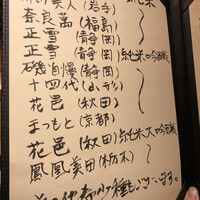 美人(岩手) 純米
奈良萬(福島)
正雪(静岡)
正雪(静岡)
磯自慢(静岡)純米吟醸
十四代(山形)
花邑(秋田)
まつもと(京都)
花邑(秋田)純米大吟醸
鳳凰美田(栃木)
その他希少種もございます。